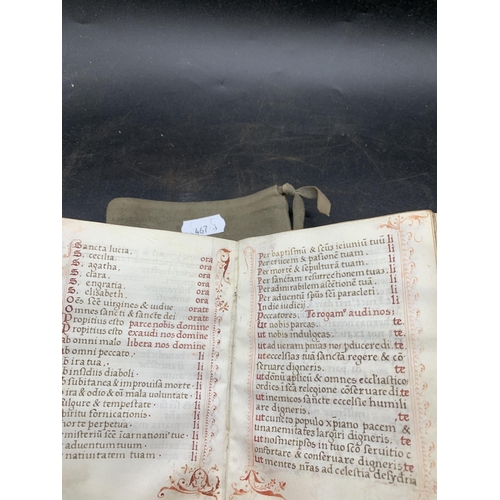 467 3
Sancta lucia. ora
S. cecilia. ora
S. agatha. ora
S. clara. ora
S. engratia. ora
S. elisabeth. ora
Oẽs scẽ virgines & uidue orate
Omnes sancti & sancte dei orate
Propitius esto parce nobis domine
Propitius esto exaudi nos domine
ab omni malo libera nos domine
ab omni peccato. li
ab ira tua. li
ab insidiis diaboli. li
subitanea & improuisa morte. li
ira & odio & oı̃ mala voluntate. li
fulgure & tempestate. li
fornicationis. li
morte perpetua. li
misteriũ scẽ incarnatiõnis tue. li
aduentum tuum. li
natiuitatem tuam. li
Per baptismũ & scũs ieiuniũ tuũ li
Per crucem & passionẽ tuam. li
Per mortẽ & sepulturã tuam. li
Per sanctam resurrectionem tuam. li
Per admirabilem ascẽtionẽ tuã. li
Per aduentũ sp̃us sc̃i paracleti. li
In die iudicij. li
Peccatores. Te rogamꝰ audi nos:
ut nobis parcas. te
ut nobis indulgeas. te
ut ad ueram penitẽtiam nos pducere di te
ut ecclesiã tuã sanctã regere & cõ
seruare digneris. te
ut donũ aplicũ & omnes ecclastico
ordĩes ĩ scã religione cõseruare di te
ut inemicos sancte ecclesie humili
are digneris. te
ut cuncto populo xpiano pacem &
unanemitatẽ largiri digneris. te
ut nosmetipsos in tuo scõ seruitio
confortare & conseruare digneris te
ut mentes nr̃as ad celestia desydria